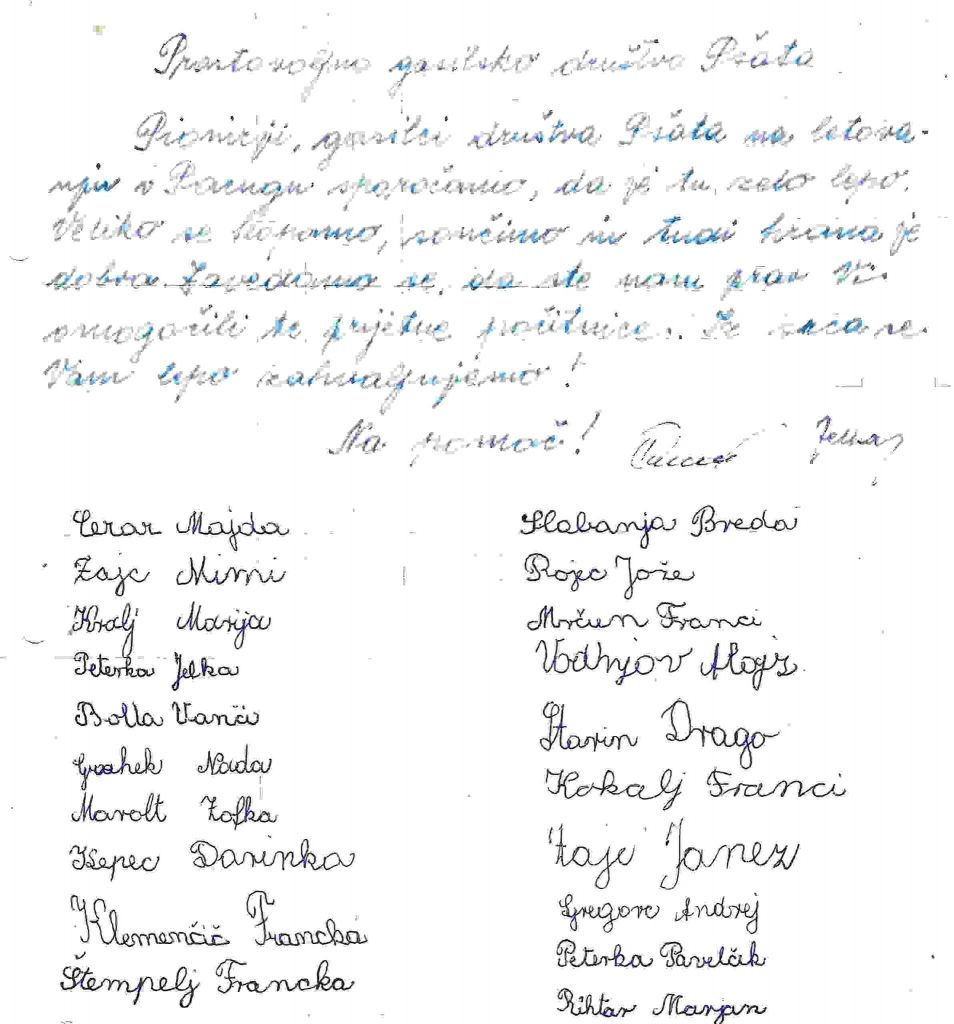 Prostovoljno gasilsko društvo Pšata
Pionirji, gasilci društva Pšata na letova-
nju v Pacugu sporočamo, da je tu zelo lepo.
Veliko se kopamo, sončimo in tudi hrana je
dobra. Zavedamo se, da ste nam prav Vi
omogočili te prijetne počitnice. Še enkrat se
Vam lepo zahvaljujemo!
Na pomoč!
Cerar Majda
Zajc Mimi
Kralj Marija
Peterka Jelka
Bolla Vanči
Grahek Nada
Marolt Zofka
Kepec Darinka
Klemenčič Francka
Štempelj Francka
Slabanja Breda
Rojc Jože
Mrčun Franci
Vodnjov Alojz
Starin Drago
Kokalj Franci
Zajc Janez
Gregorc Andrej
Peterka Pavelčik
Rihtar Marjan